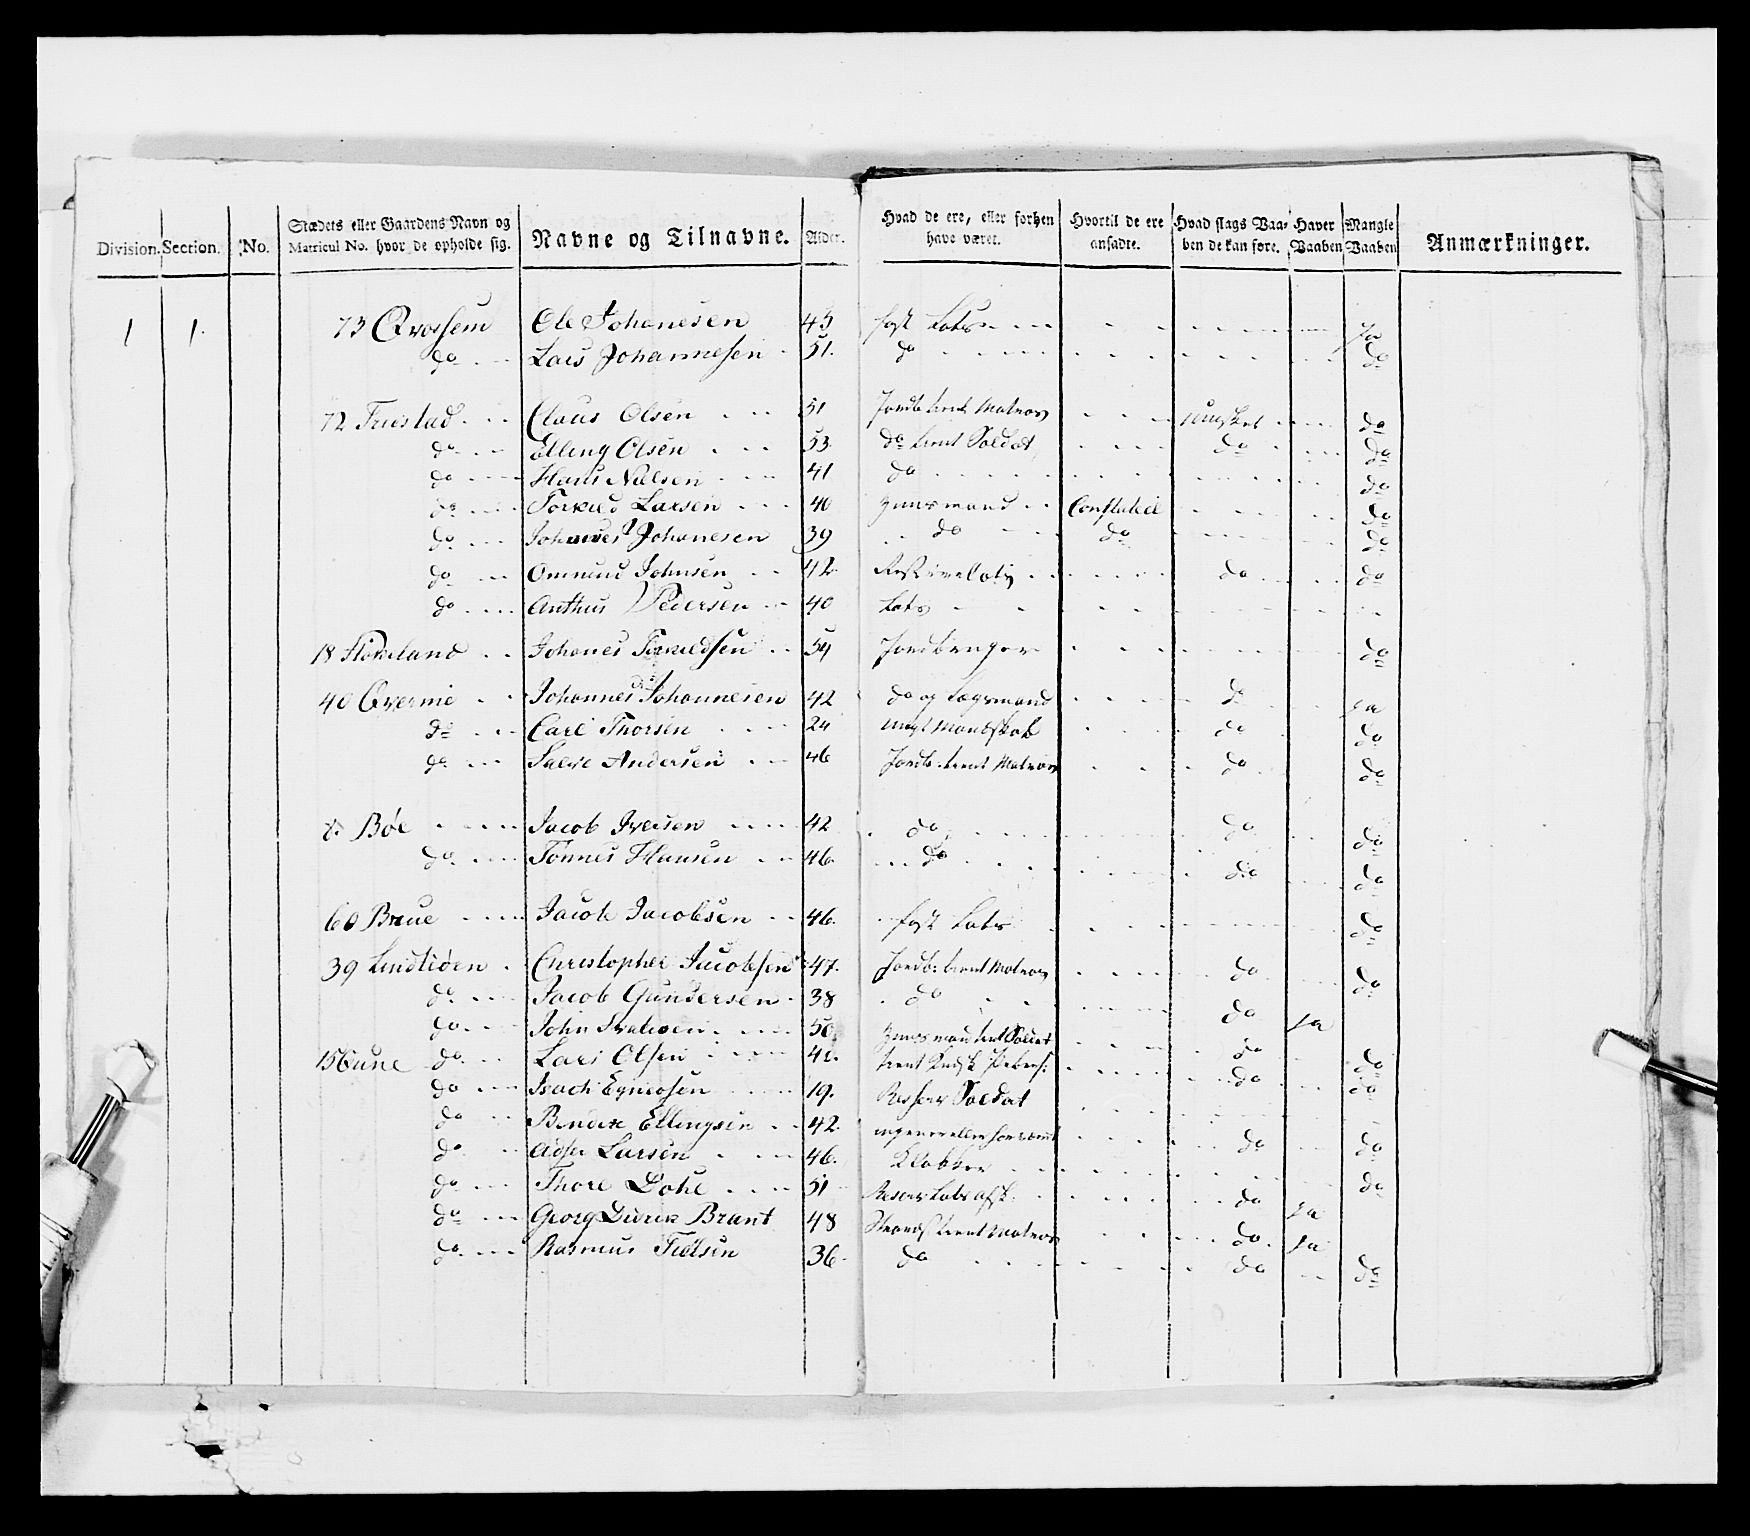 Division. Section. No. Stædets eller Gaardens Navn og Matricul No. hvor de opholde sig. Navne og Tilnavne. Alder. Hvad de ere, eller forhen have været. Hvortil de ere ansadte. Hvad slags Vaaben de kan føre. Haver Vaaben Mangle Vaaben Anmærkninger.
1 1. 73 Ole Johanesen 45 fast Lots Ja
do Lars Johannesen 51. do do
72 Friestad Claus Olsen 51 Jordb. tient Matros do
do Elling Olsen 53 do tient Soldat do do
do Hans Nielsen 41 do do
do Torkild Larsen 40 do
do Johannes Johanesen 39 do do do
do Ommund Johnsen 42 do do
do Anthus Pedersen 40 Lots
18 Johanes Torkildsen 54 Jordbruger do
40 Johannes Johannesen 42 do og Lagsmand do Ja
do Carl Thorsen 24 ungt Mandskab do do
do Salve Andersen 46 Jordb. tient Matros do do
Bøe Jacob Iversen 42 do do do
do Tønnes Hansen 46. do do do
60 Brue Jacob Jacobsen 46. fast Lots do
39 Christopher Jacobsen 47. Jordb: tient Matros do do
do Jacob Gundersen 38 do do Ja
do John 50 tient Soldat do do
do Lars Olsen 41. tient do do
do 19. Reserv Soldat
do Bendix Ellingsen 42. do do
do Larsen 46. Klokker do
do Thore 51 Reserv Lots do Ja
do Georg Didrik Brant 48 tient Matros do Ja
do Rasmus 36 do do do